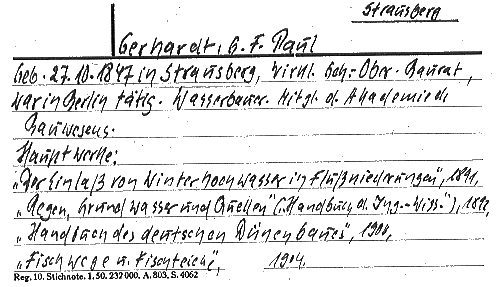 Strausberg
Gerhardt, G. F. Paul
Geb. 27.10.1847 in Strausberg, Wirkl. Geh.-Ober-Baurat,
war in Berlin tätig. Wasserbauer. Mitgl. d. Akademie d.
Bauwesens.
Hauptwerke:
„Der Einlaß von Winterhochwasser in Flußniederungen", 1891,
„Regen, Grundwasser und Quellen" (:Handbuch d. Ing.-Wiss."),
„Handbuch des deutschen Dünenbaues", 1900,
„Fischwege u. Fischteiche", 1904.
Reg. 10. Stichnote. 1. 50. 232 000. A. 803, S. 4062